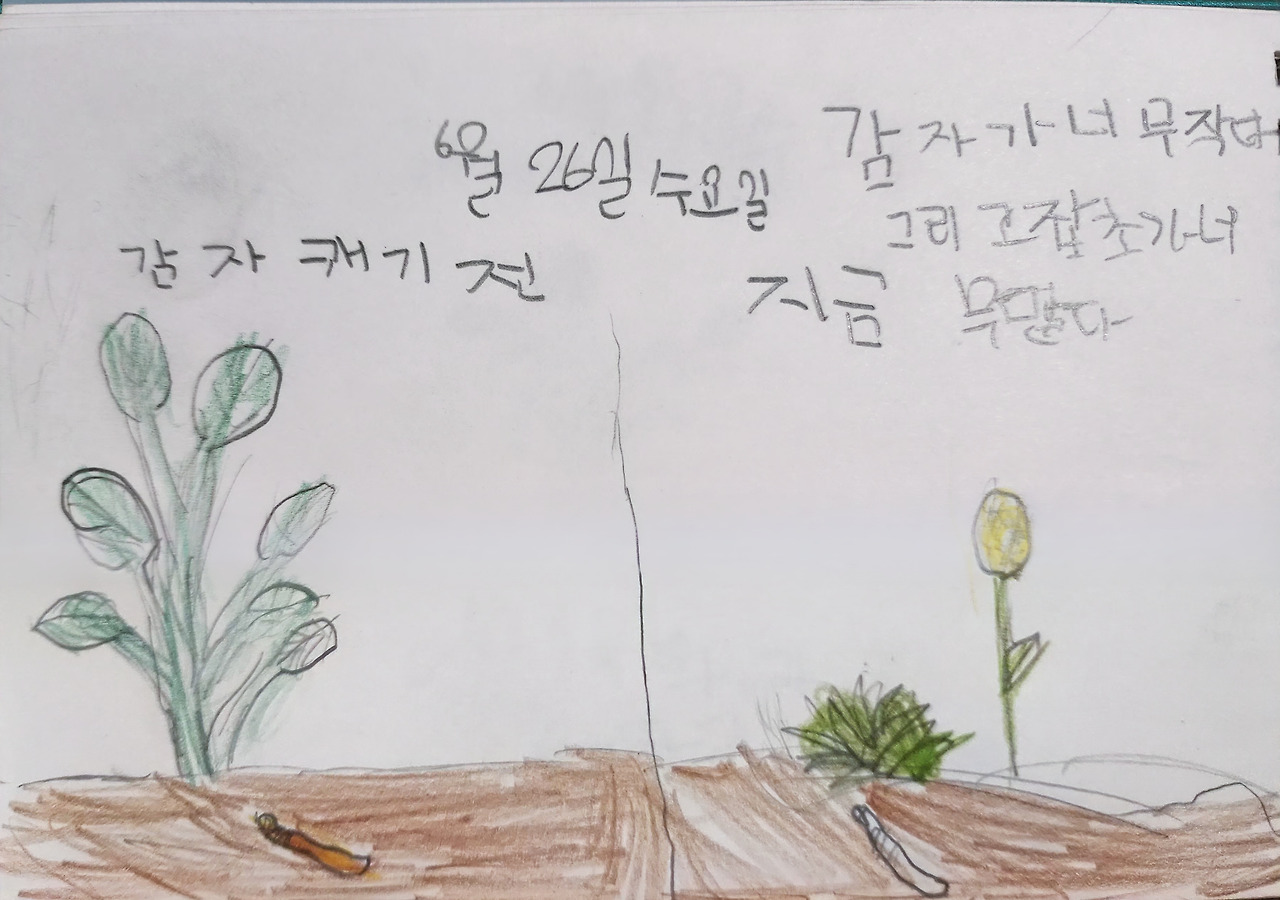 6월 26일 수요일
감자 캐기 전
지금
감자가 너무 작다
그리고 잡초가 너
무 많다